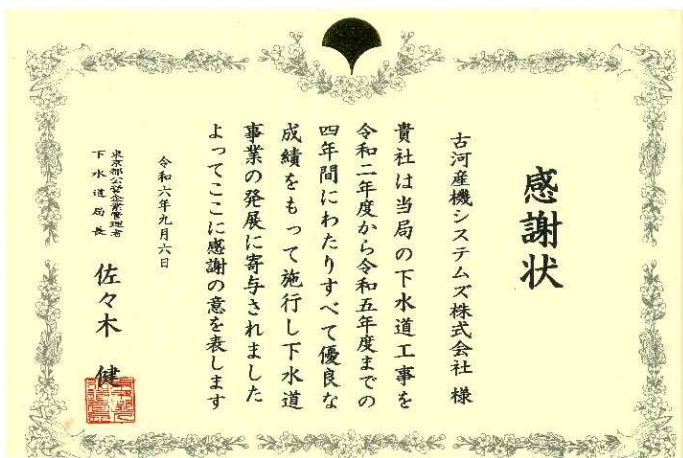 感謝状
古河産機システムズ株式会社 様
貴社は当局の下水道工事を
令和二年度から令和五年度までの
四年間にわたりすべて優良な
成績をもって施行し下水道
事業の発展に寄与されました
よってここに感謝の意を表します
令和六年九月六日
東京都公営企業管理者
下水道局長
佐々木 健